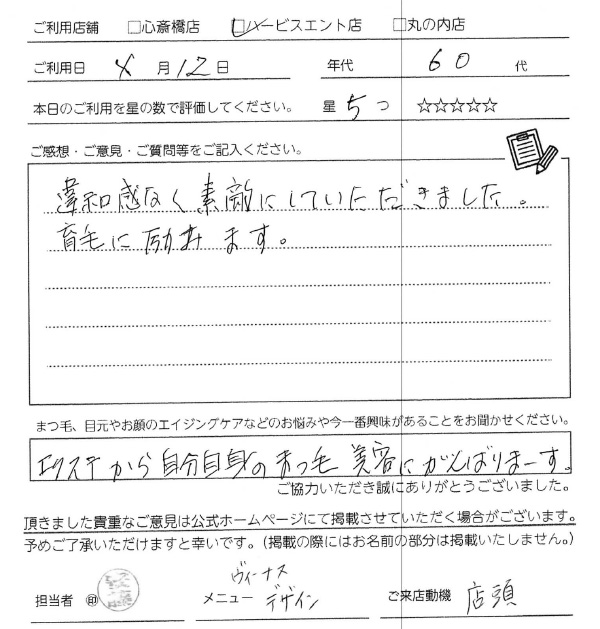 ご利用店舗 □心斎橋店 □ハービスエント店 □丸の内店
ご利用日 4 月 12 日 年代 60 代
本日のご利用を星の数で評価してください。 星 5 つ ☆☆☆☆☆
ご感想・ご意見・ご質問等をご記入ください。
違和感なく素敵にしていただきました。
育毛に励みます。
まつ毛、目元やお顔のエイジングケアなどのお悩みや今一番興味があることをお聞かせください。
エクステから自分自身のまつ毛美容にがんばりまーす。
ご協力いただき誠にありがとうございました。
頂きました貴重なご意見は公式ホームページにて掲載させていただく場合がございます。
予めご了承いただけますと幸いです。（掲載の際にはお名前の部分は掲載いたしません。）
担当者 ㊞ メニュー ヴィーナスデザイン ご来店動機 店頭